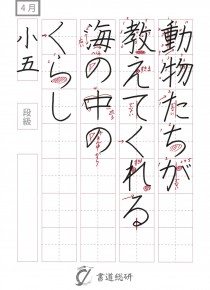 4月
動物たちが
教えてくれる
海の中の
くらし
小五
段級
書道総研